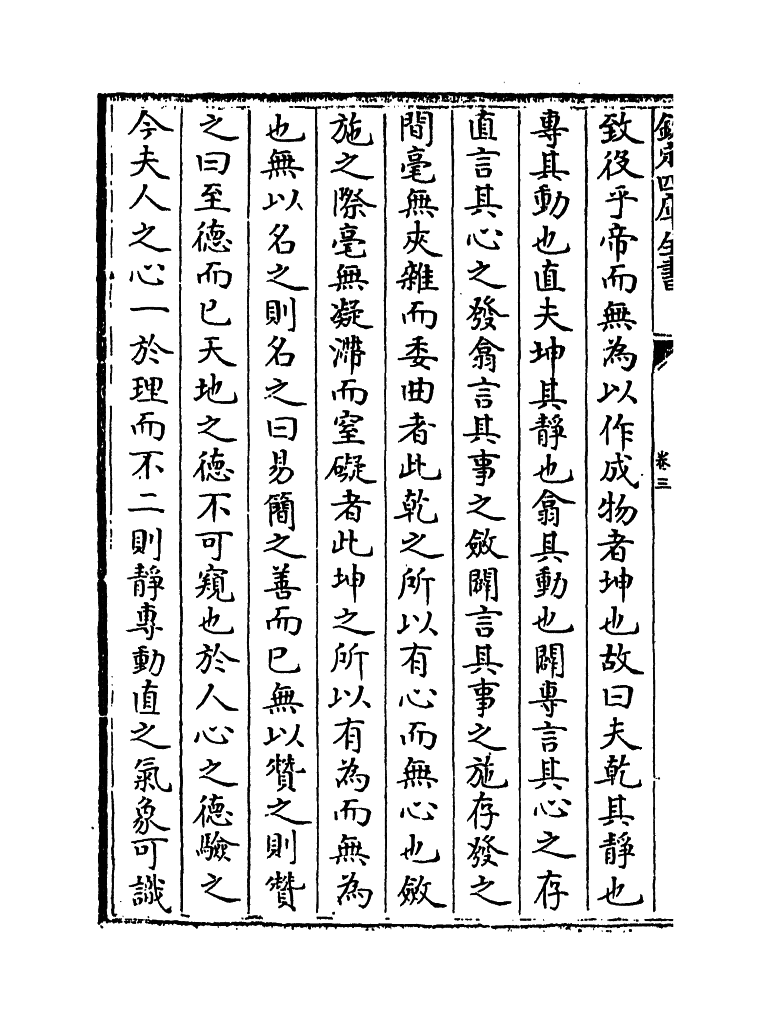 欽定四庫全書
卷三
致役乎帝而無為以作成物者坤也故曰夫乾其靜也
專其動也直夫坤其靜也翕其動也闢專言其心之存
直言其心之發翕言其事之斂闢言其事之施存發之
間毫無夾雜而委曲者此乾之所以有心而無心也斂
施之際毫無凝滯而窒礙者此坤之所以有為而無為
也無以名之則名之曰易簡之善而已無以贊之則贊
之曰至德而已天地之德不可窺也於人心之德驗之
今夫人之心一於理而不二則靜專動直之氣象可識